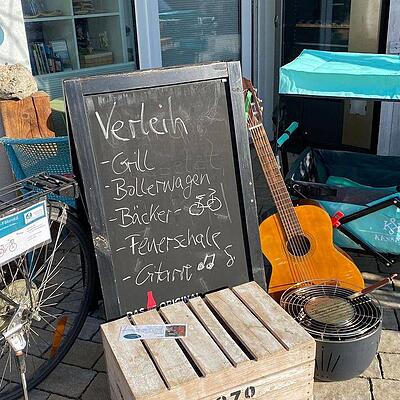 Verleih
- Grill
- Bollerwagen
- Bäcker-
- Feuerschale
- Gitarre
DAS ORIGINAL
070